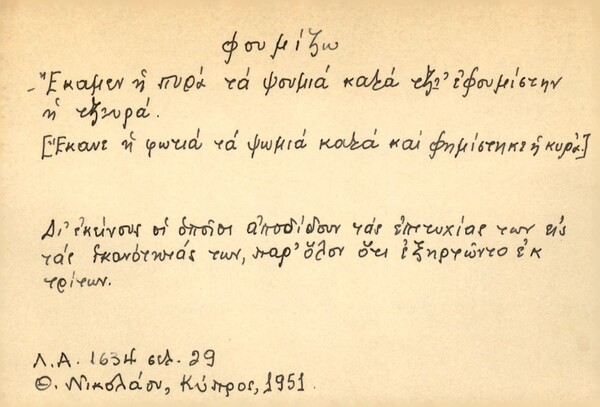 φουμίζω
-Ἔκαμεν ἡ πυρά τά ψουμιά κατά τζ̌' ἐφουμίστην
ἡ τζ̌υρά.
[Ἔκανε ἡ φωτιά τά ψωμιά κατά καί φημίστηκε ἡ κυρά.]
Δι' ἐκείνους οἱ ὁποῖοι ἀποδίδουν τάς ἐπιτυχίας των εἰς
τάς ἱκανότητάς των, παρ' ὅλον ὅτι ἐξηρτῶντο ἐκ
τρίτων.
Λ.Α. 1634 σελ. 29
Θ. Νικολάου, Κύπρος, 1951.